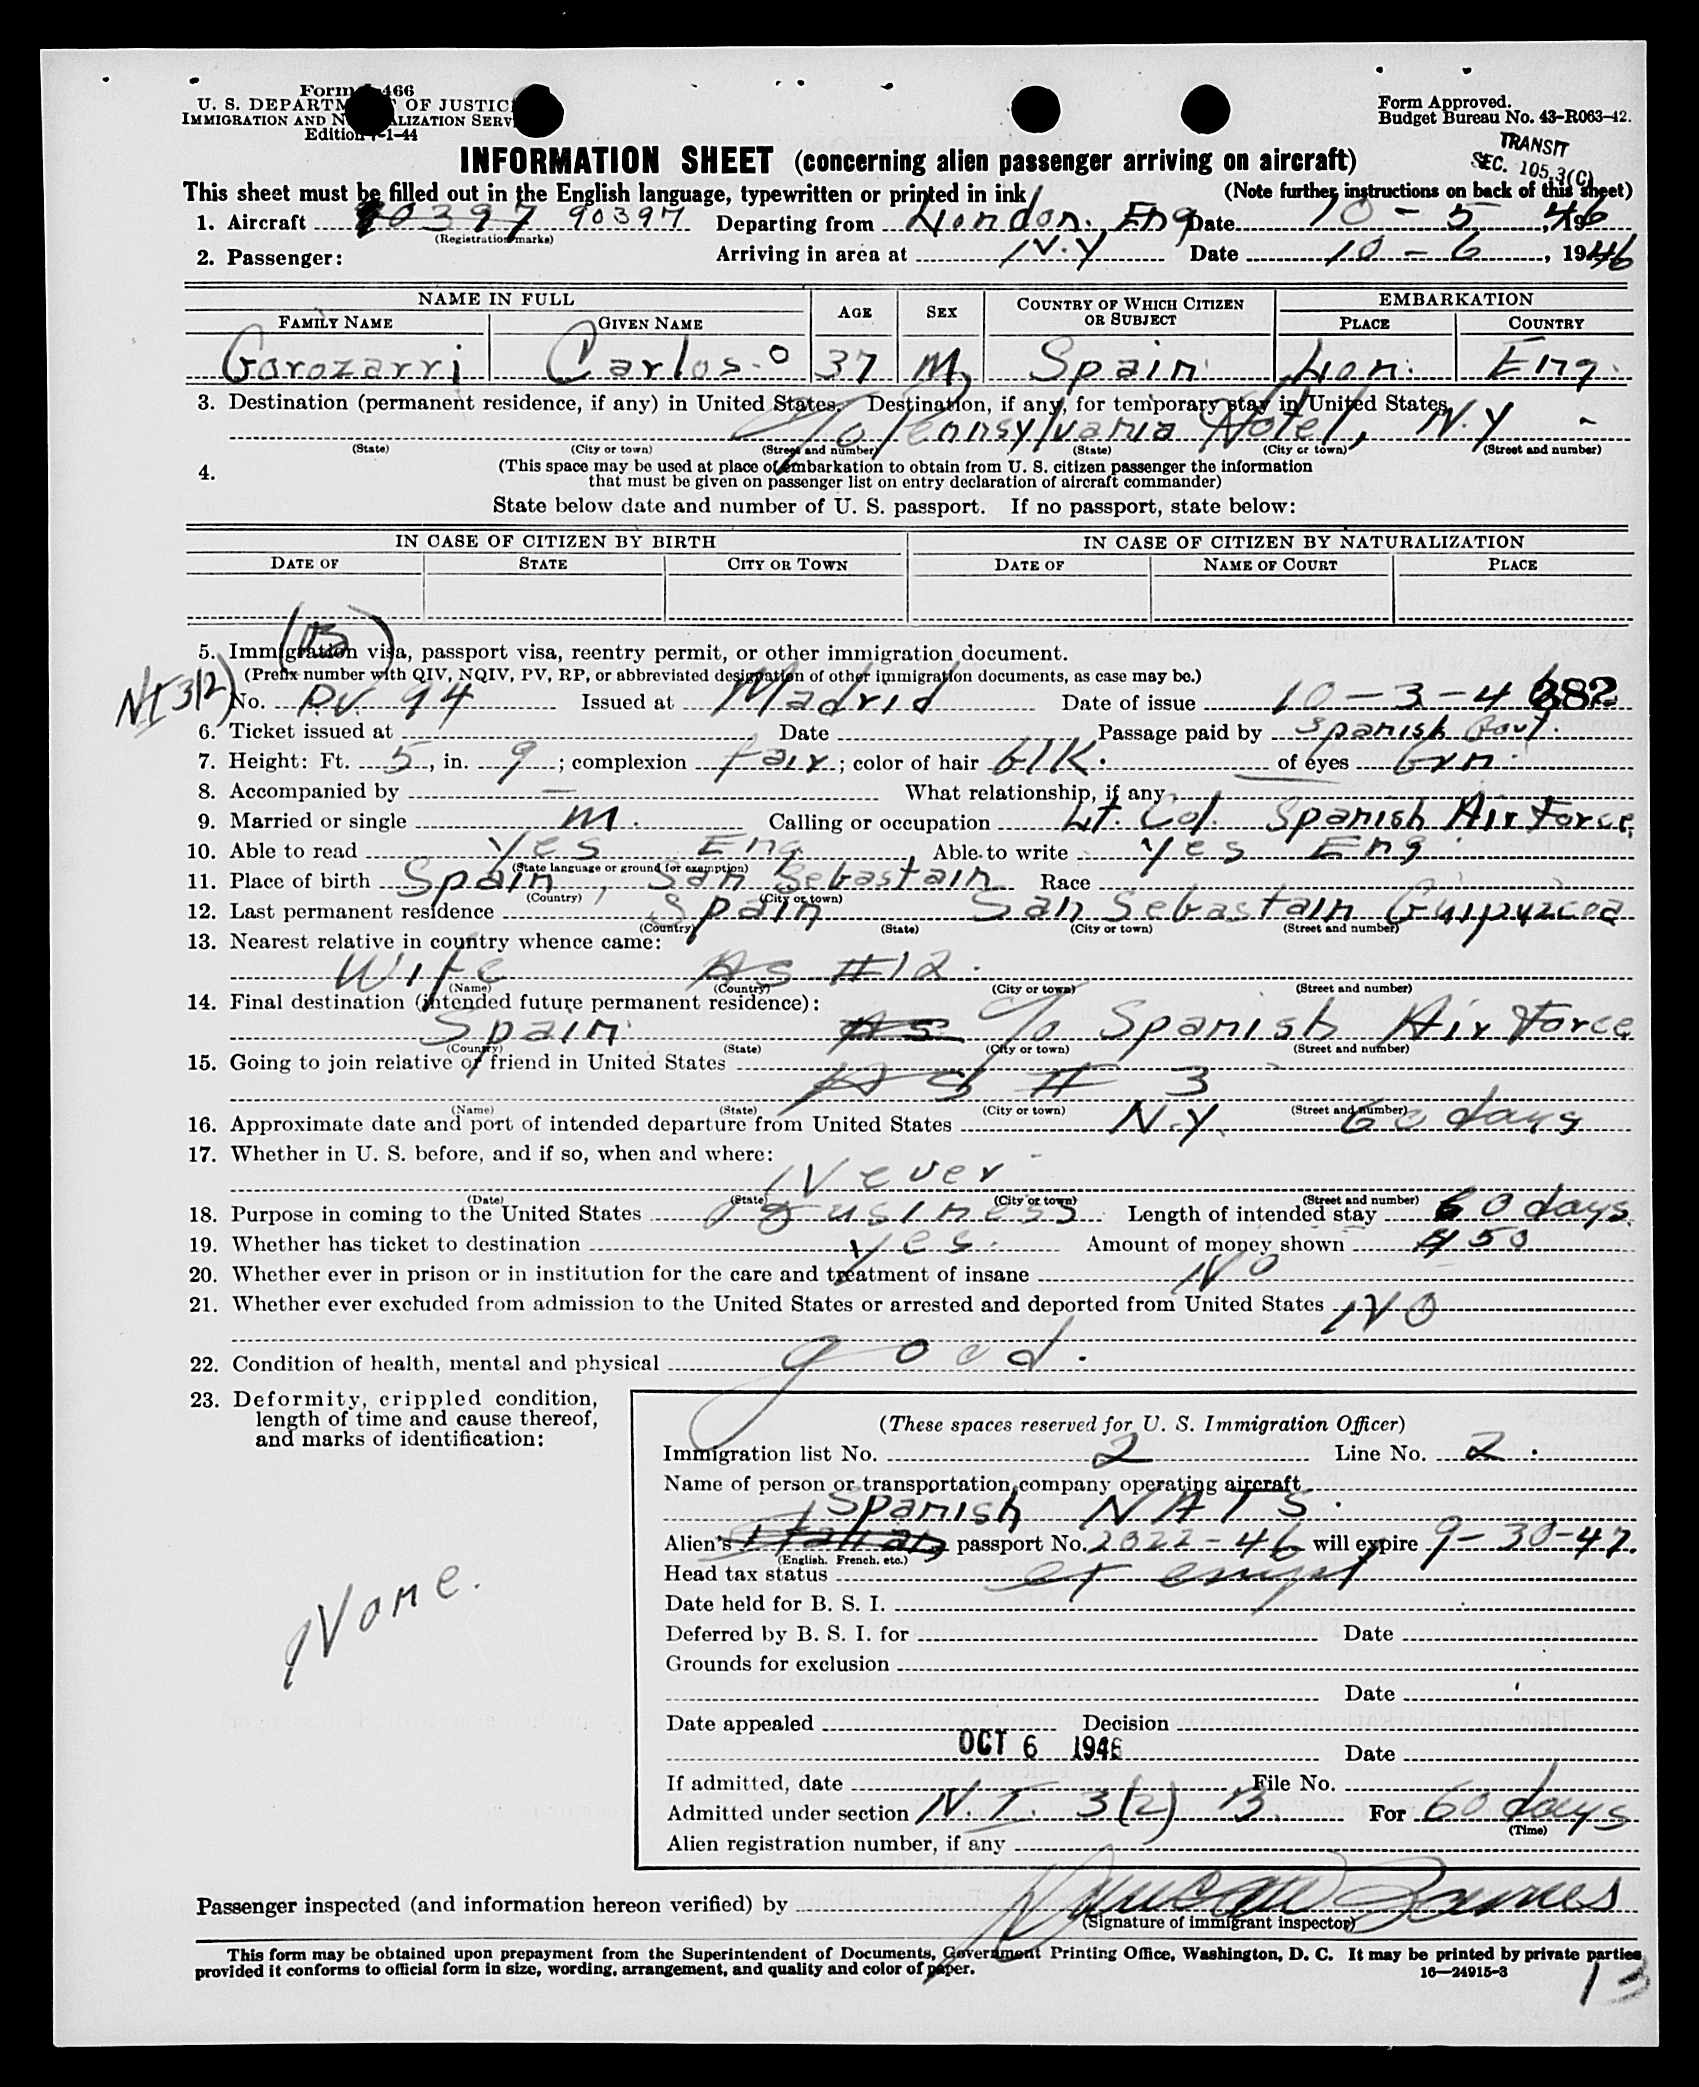 Form I-466
U. S. DEPARTMENT OF JUSTICE
IMMIGRATION AND NATURALIZATION SERVICE
Edition 7-1-44
Form Approved.
Budget Bureau No. 43-R063-42.
TRANSIT
SEC. 105.3(C)
INFORMATION SHEET (concerning alien passenger arriving on aircraft)
This sheet must be filled out in the English language, typewritten or printed in ink
(Note further instructions on back of this sheet)
1. Aircraft 90397 90397 Departing from London, Eng Date 10-5, 1946
(Registration marks)
2. Passenger: Arriving in area at N.Y Date 10-6, 1946
NAME IN FULL AGE SEX COUNTRY OF WHICH CITIZEN OR SUBJECT EMBARKATION
FAMILY NAME GIVEN NAME PLACE COUNTRY
Garozarri Carlos 37 M Spain Lon. Eng.
3. Destination (permanent residence, if any) in United States. Destination, if any, for temporary stay in United States
c/o Pennsylvania Hotel, N.Y -
(State) (City or town) (Street and number) (State) (City or town) (Street and number)
4. (This space may be used at place of embarkation to obtain from U. S. citizen passenger the information
that must be given on passenger list on entry declaration of aircraft commander)
State below date and number of U. S. passport. If no passport, state below:
IN CASE OF CITIZEN BY BIRTH IN CASE OF CITIZEN BY NATURALIZATION
DATE OF STATE CITY OR TOWN DATE OF NAME OF COURT PLACE
(B)
5. Immigration visa, passport visa, reentry permit, or other immigration document.
(Prefix number with QIV, NQIV, PV, RP, or abbreviated designation of other immigration documents, as case may be.)
NI 3(2)
No. P.V. 94 Issued at Madrid Date of issue 10-3-46 682
6. Ticket issued at Date Passage paid by Spanish Govt.
7. Height: Ft. 5, in. 9; complexion fair; color of hair blk. of eyes Grn.
8. Accompanied by — What relationship, if any
9. Married or single M. Calling or occupation Lt. Col. Spanish Air Force
10. Able to read Yes Eng, Able to write Yes Eng
(State language or ground for exemption)
11. Place of birth Spain, San Sebastain Race
(Country) (City or town)
12. Last permanent residence Spain San Sebastain Guipuzcoa
(Country) (State) (City or town) (Street and number)
13. Nearest relative in country whence came:
Wife As #12.
(Name) (Country) (City or town) (Street and number)
14. Final destination (intended future permanent residence):
Spain As c/o Spanish Air Force
(Country) (State) (City or town) (Street and number)
15. Going to join relative or friend in United States
As # 3
(Name) (State) (City or town) (Street and number)
16. Approximate date and port of intended departure from United States N.Y. 60 days
17. Whether in U. S. before, and if so, when and where:
Never
(Date) (State) (City or town) (Street and number)
18. Purpose in coming to the United States Business Length of intended stay 60 days
19. Whether has ticket to destination Yes. Amount of money shown $50
20. Whether ever in prison or in institution for the care and treatment of insane No
21. Whether ever excluded from admission to the United States or arrested and deported from United States No
22. Condition of health, mental and physical good.
23. Deformity, crippled condition,
length of time and cause thereof,
and marks of identification:
None.
(These spaces reserved for U. S. Immigration Officer)
Immigration list No. 2 Line No. 2.
Name of person or transportation company operating aircraft
NATS.
Spanish
Alien's Italian passport No. 2022-46 will expire 9-30-47.
(English, French, etc.)
Head tax status exempt
Date held for B. S. I.
Deferred by B. S. I. for Date
Grounds for exclusion
Date
Date appealed Decision
OCT 6 1946 Date
If admitted, date File No.
Admitted under section N.I. 3(2) B. For 60 days
(Time)
Alien registration number, if any
Passenger inspected (and information hereon verified) by Duncan
(Signature of immigrant inspector)
This form may be obtained upon prepayment from the Superintendent of Documents, Government Printing Office, Washington, D. C. It may be printed by private parties
provided it conforms to official form in size, wording, arrangement, and quality and color of paper. 16—24915-3
13